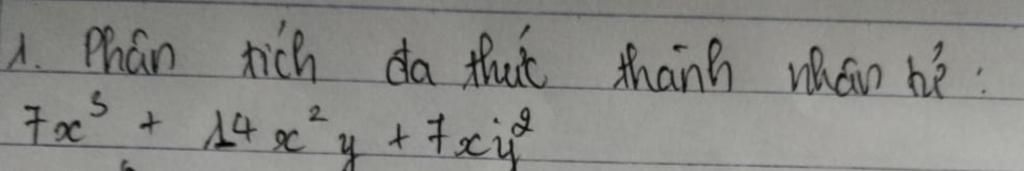 1. Phân tích đa thức thành nhân tử:
7x³ + 14x²y + 7xy²